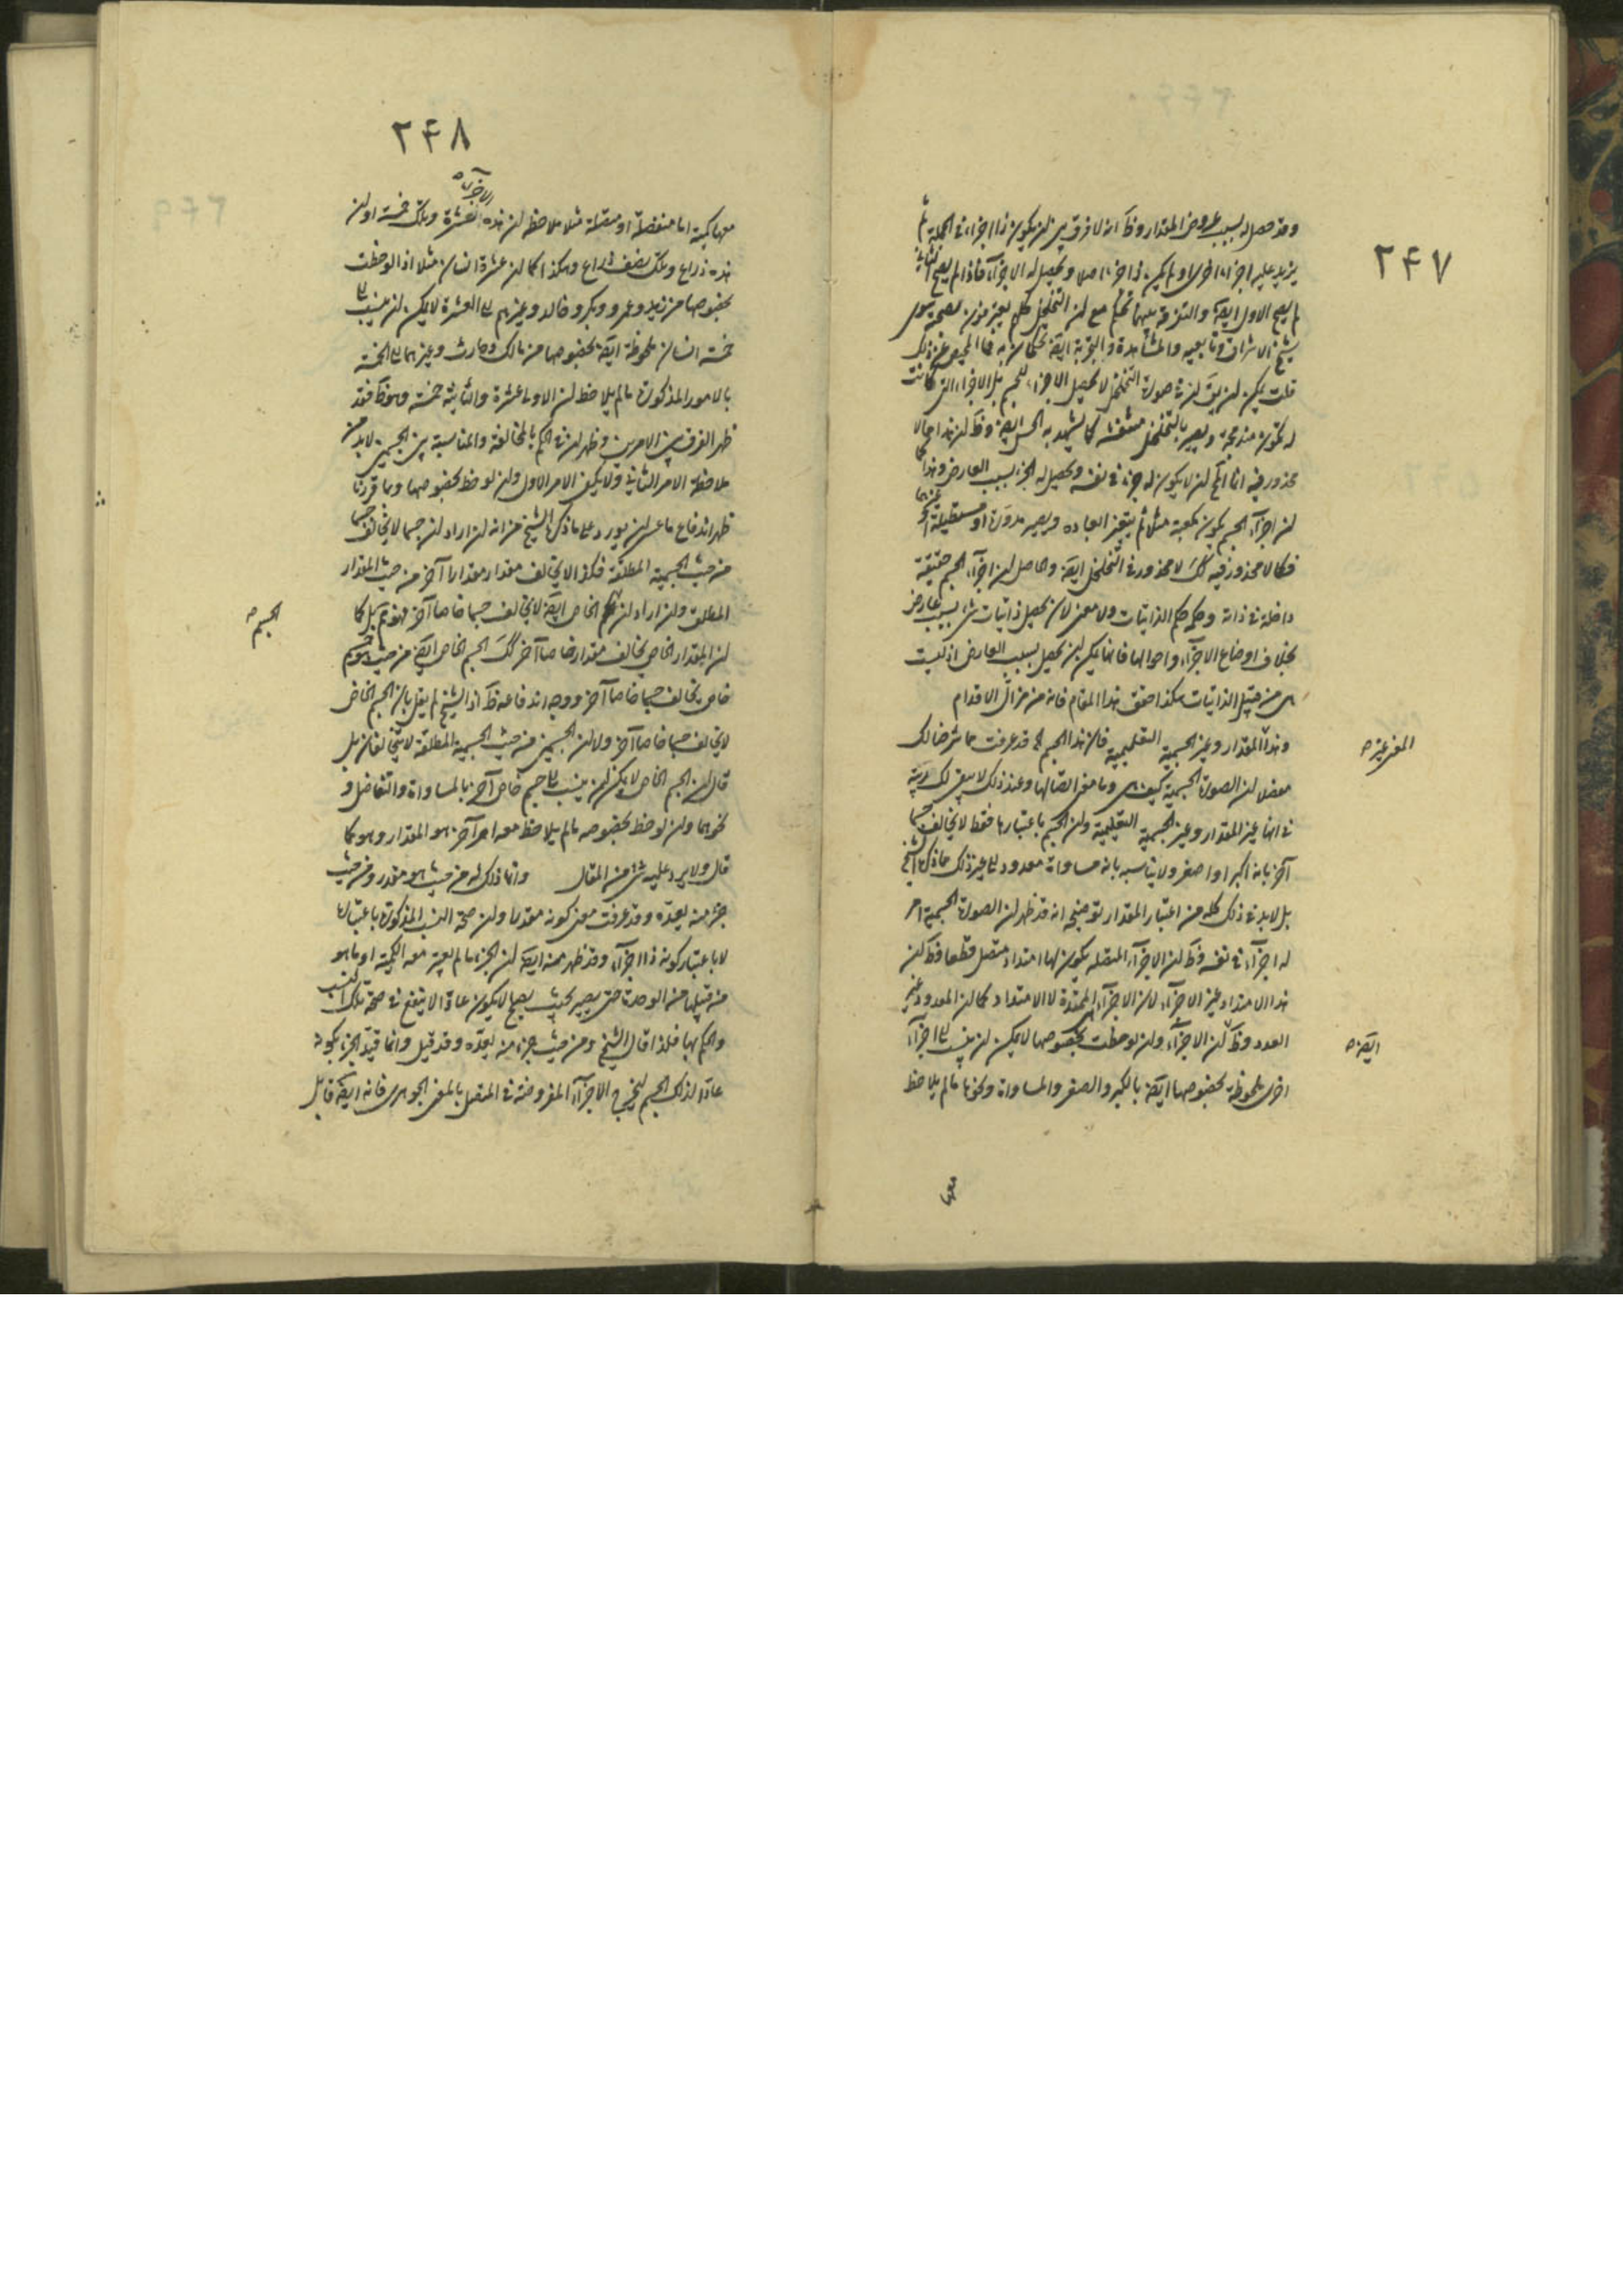 ٢۴٧
وقد حصل له بسبب عروض المقدار وظ انه لا فرق بين ان يكون ذا اجزاء في الجملة ثم
يزيد عليه اجزاء اخرى او لم يكن ذا جزء اصلا ويحصل له الاجزاء فاذا لم يصح الثاني
لم يصح الاول ايضا والتفرقة بينهما تحكم مع ان التخلخل كلهم يعترفون بصحته سوى
شيخ الاشراق وتابعيه والمشاهدة والتجربة ايضا تحكمان به فما المحيص عن ذلك
قلت يمكن ان يق ان في صورة التخلخل لا يحصل الاجزاء للجسم بل الاجزاء التي كانت
له تكون مندمجة ويصير بالتخلخل منتفشة كما يشهد به الحس ايضا وظ ان هذا مما لا
محذور فيه انما الحكم ان لا يكون له جزء في نفسه ويحصل له الجزء بسبب العارض وهذا كما
ان اجزاء الجسم يكون مكعبة مثلا ثم يتغير ابعاده ويصير مدورة او مستطيلة او غيرها
فكما لا محذور فيه كك لا محذور في التخلخل ايضا والحاصل ان اجزاء الجسم حقيقة
داخلة في ذاته وحكمه حكم الذاتيات ولا معنى لان يحصل ذاتيات شيء بسبب عارض
بخلاف اوضاع الاجزاء واحوالها فانها يمكن ان يحصل بسبب العارض اذ ليست
هي من قبيل الذاتيات هكذا حقق هذا المقام فانه من مزال الاقدام
وهذا المقدار وغير الجسمية التعليمية فان هذا الجسم الخ قد عرفت مما شرحنا لك
المعنى غيره ص
مفصلا ان الصورة الجسمية كيف هي وما معنى اتصالها وعند ذلك لا يبقى لك ريبة
في انها غير المقدار وغير الجسمية التعليمية وان الجسم باعتبارها فقط لا يخالف جسما
آخر بانه اكبر او اصغر ولا يناسبه بانه مساو او معدود الى غير ذلك مما ذكره الشيخ
بل لابد في ذلك كله من اعتبار المقدار توضيحه انه قد ظهر ان الصورة الجسمية امر
له اجزاء في نفسه وظ ان الاجزاء المتصلة يكون لها امتداد متصل قطعا وظ ان
هذا الامتداد غير الاجزاء لان الاجزاء هي الممتدة لا الامتداد كما ان المعدود غير
العدد وظ ان الاجزاء وان لوحظت بخصوصها لا يمكن ان ينسب الى اجزاء
ايضا ص
اخرى ملحوظة بخصوصها ايضا بالكبر والصغر والمساواة ونحوها ما لم يلاحظ
معها
٢۴٨
معها كمية اما منفصلة او متصلة مثلا يلاحظ ان هذه الاجزاء ص عشرة وتلك خمسة او ان
هذه ذراع وتلك نصف ذراع وهكذا كما ان عشرة انسان مثلا اذا لوحظت
بخصوصها من زيد وعمرو وبكر وخالد وغيرهم الى العشرة لا يمكن ان ينسب الى
خمسة انسان ملحوظة ايضا بخصوصها من مالك وحارث وغيرهما الى الخمسة
بالامور المذكورة ما لم يلاحظ ان الاولى عشرة والثانية خمسة وهو ظ فقد
ظهر الفرق بين الامرين وظهر ان في الحكم بالمخالفة والمناسبة بين الجسمين لابد من
ملاحظة الامر الثاني ولا يكفي الامر الاول وان لوحظ بخصوصها وبما قررنا
ظهر اندفاع ما عسى ان يورد على ما ذكره الشيخ من انه ان اراد ان جسما لا يخالف جسما
من حيث الجسمية المطلقة فكذا لا يخالف مقدار مقدارا آخر من حيث المقدار
المطلق وان اراد ان الجسم الخاص ايضا لا يخالف جسما خاصا آخر فهو ثم بل كما
الجسم ص
ان المقدار الخاص يخالف مقدارا خاصا آخر كك الجسم الخاص ايضا من حيث هو جسم
خاص يخالف جسما خاصا آخر ووجه اندفاعه ظ اذ الشيخ لم يقل بان الجسم الخاص
لا يخالف جسما خاصا آخر ولا ان الجسمين من حيث الجسمية المطلقة لا يتخالفان بل
قال ان الجسم الخاص لا يمكن ان ينسب الى جسم خاص آخر بالمساواة والتفاضل و
نحوهما وان لوحظ بخصوصه ما لم يلاحظ معه امر آخر هو المقدار وهو كما
قال ولا يرد عليه شيء من المقال وانما ذلك له من حيث هو مقدر ومن حيث
جزء منه يعده وقد عرفت معنى كونه مقدرا وان صحة النسب المذكورة باعتباره
لا باعتبار كونه ذا اجزاء وقد ظهر منه ايضا ان الجزء ما لم يعتبر معه الكمية او ما هو
من قبيلها من الوحدة حتى يصير بحيث يصح لا يكون عادا لا ينفع في صحة تلك النسب
والحكم بها فلذا قال الشيخ ومن حيث جزء منه يعده وقد قيل وانما قيد الجزء بكونه
عادا لذلك الجسم ليخرج الاجزاء المفروضة في المتصل بالمعنى الجوهري فانه ايضا قابل